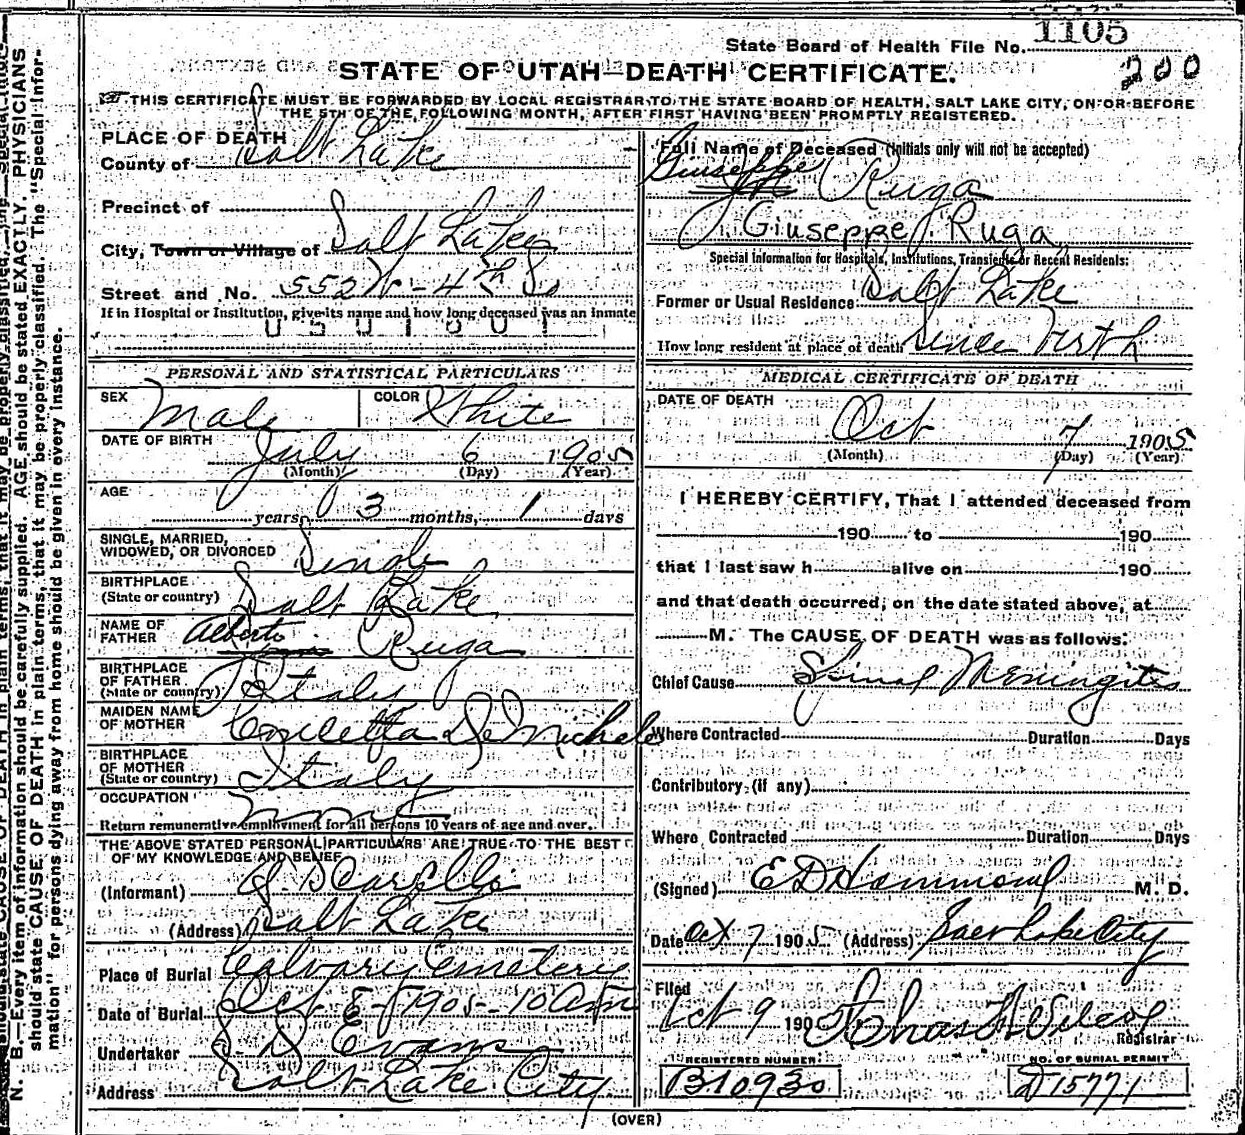 1105
State Board of Health File No.
200
STATE OF UTAH—DEATH CERTIFICATE.
THIS CERTIFICATE MUST BE FORWARDED BY LOCAL REGISTRAR TO THE STATE BOARD OF HEALTH, SALT LAKE CITY, ON OR BEFORE
THE 5TH OF THE FOLLOWING MONTH, AFTER FIRST HAVING BEEN PROMPTLY REGISTERED.
PLACE OF DEATH
County of Salt Lake
Precinct of
City, Town or Village of Salt Lake
Street and No. 552 W - 4th So
If in Hospital or Institution, give its name and how long deceased was an inmate
0501601
PERSONAL AND STATISTICAL PARTICULARS
SEX Male COLOR White
DATE OF BIRTH July 6 1905
(Month) (Day) (Year)
AGE
years, 3 months, 1 days
SINGLE, MARRIED,
WIDOWED, OR DIVORCED Single
BIRTHPLACE
(State or country) Salt Lake
NAME OF
FATHER Alberto Ruga
BIRTHPLACE
OF FATHER
(State or country) Italy
MAIDEN NAME
OF MOTHER Concetta De Michele
BIRTHPLACE
OF MOTHER
(State or country) Italy
OCCUPATION None
Return remunerative employment for all persons 10 years of age and over.
THE ABOVE STATED PERSONAL PARTICULARS ARE TRUE TO THE BEST
OF MY KNOWLEDGE AND BELIEF
(Informant)
(Address) Salt Lake
Place of Burial Calvary Cemetery
Date of Burial Oct 8 - 1905 - 10 am
Undertaker S. D. Evans
Address Salt Lake City
Full Name of Deceased (Initials only will not be accepted)
Giuseppe Ruga
Giuseppe Ruga
Special Information for Hospitals, Institutions, Transients or Recent Residents:
Former or Usual Residence Salt Lake
How long resident at place of death Since Birth
MEDICAL CERTIFICATE OF DEATH
DATE OF DEATH
Oct 7 1905
(Month) (Day) (Year)
I HEREBY CERTIFY, That I attended deceased from
190 to 190
that I last saw h alive on 190
and that death occurred, on the date stated above, at
M. The CAUSE OF DEATH was as follows:
Chief Cause Spinal Meningitis
Where Contracted Duration Days
Contributory (if any)
Where Contracted Duration Days
(Signed) E D Hammond M. D.
Date Oct 7 1905 (Address) Salt Lake City
Filed
Oct 9 1905 Chas M Wilcox
Registrar
REGISTERED NUMBER
B10930
NO. OF BURIAL PERMIT
D15771
(OVER)
N. B.—Every item of information should be carefully supplied. AGE should be stated EXACTLY. PHYSICIANS
should state CAUSE OF DEATH in plain terms, that it may be properly classified. The "Special Infor-
mation" for persons dying away from home should be given in every instance.